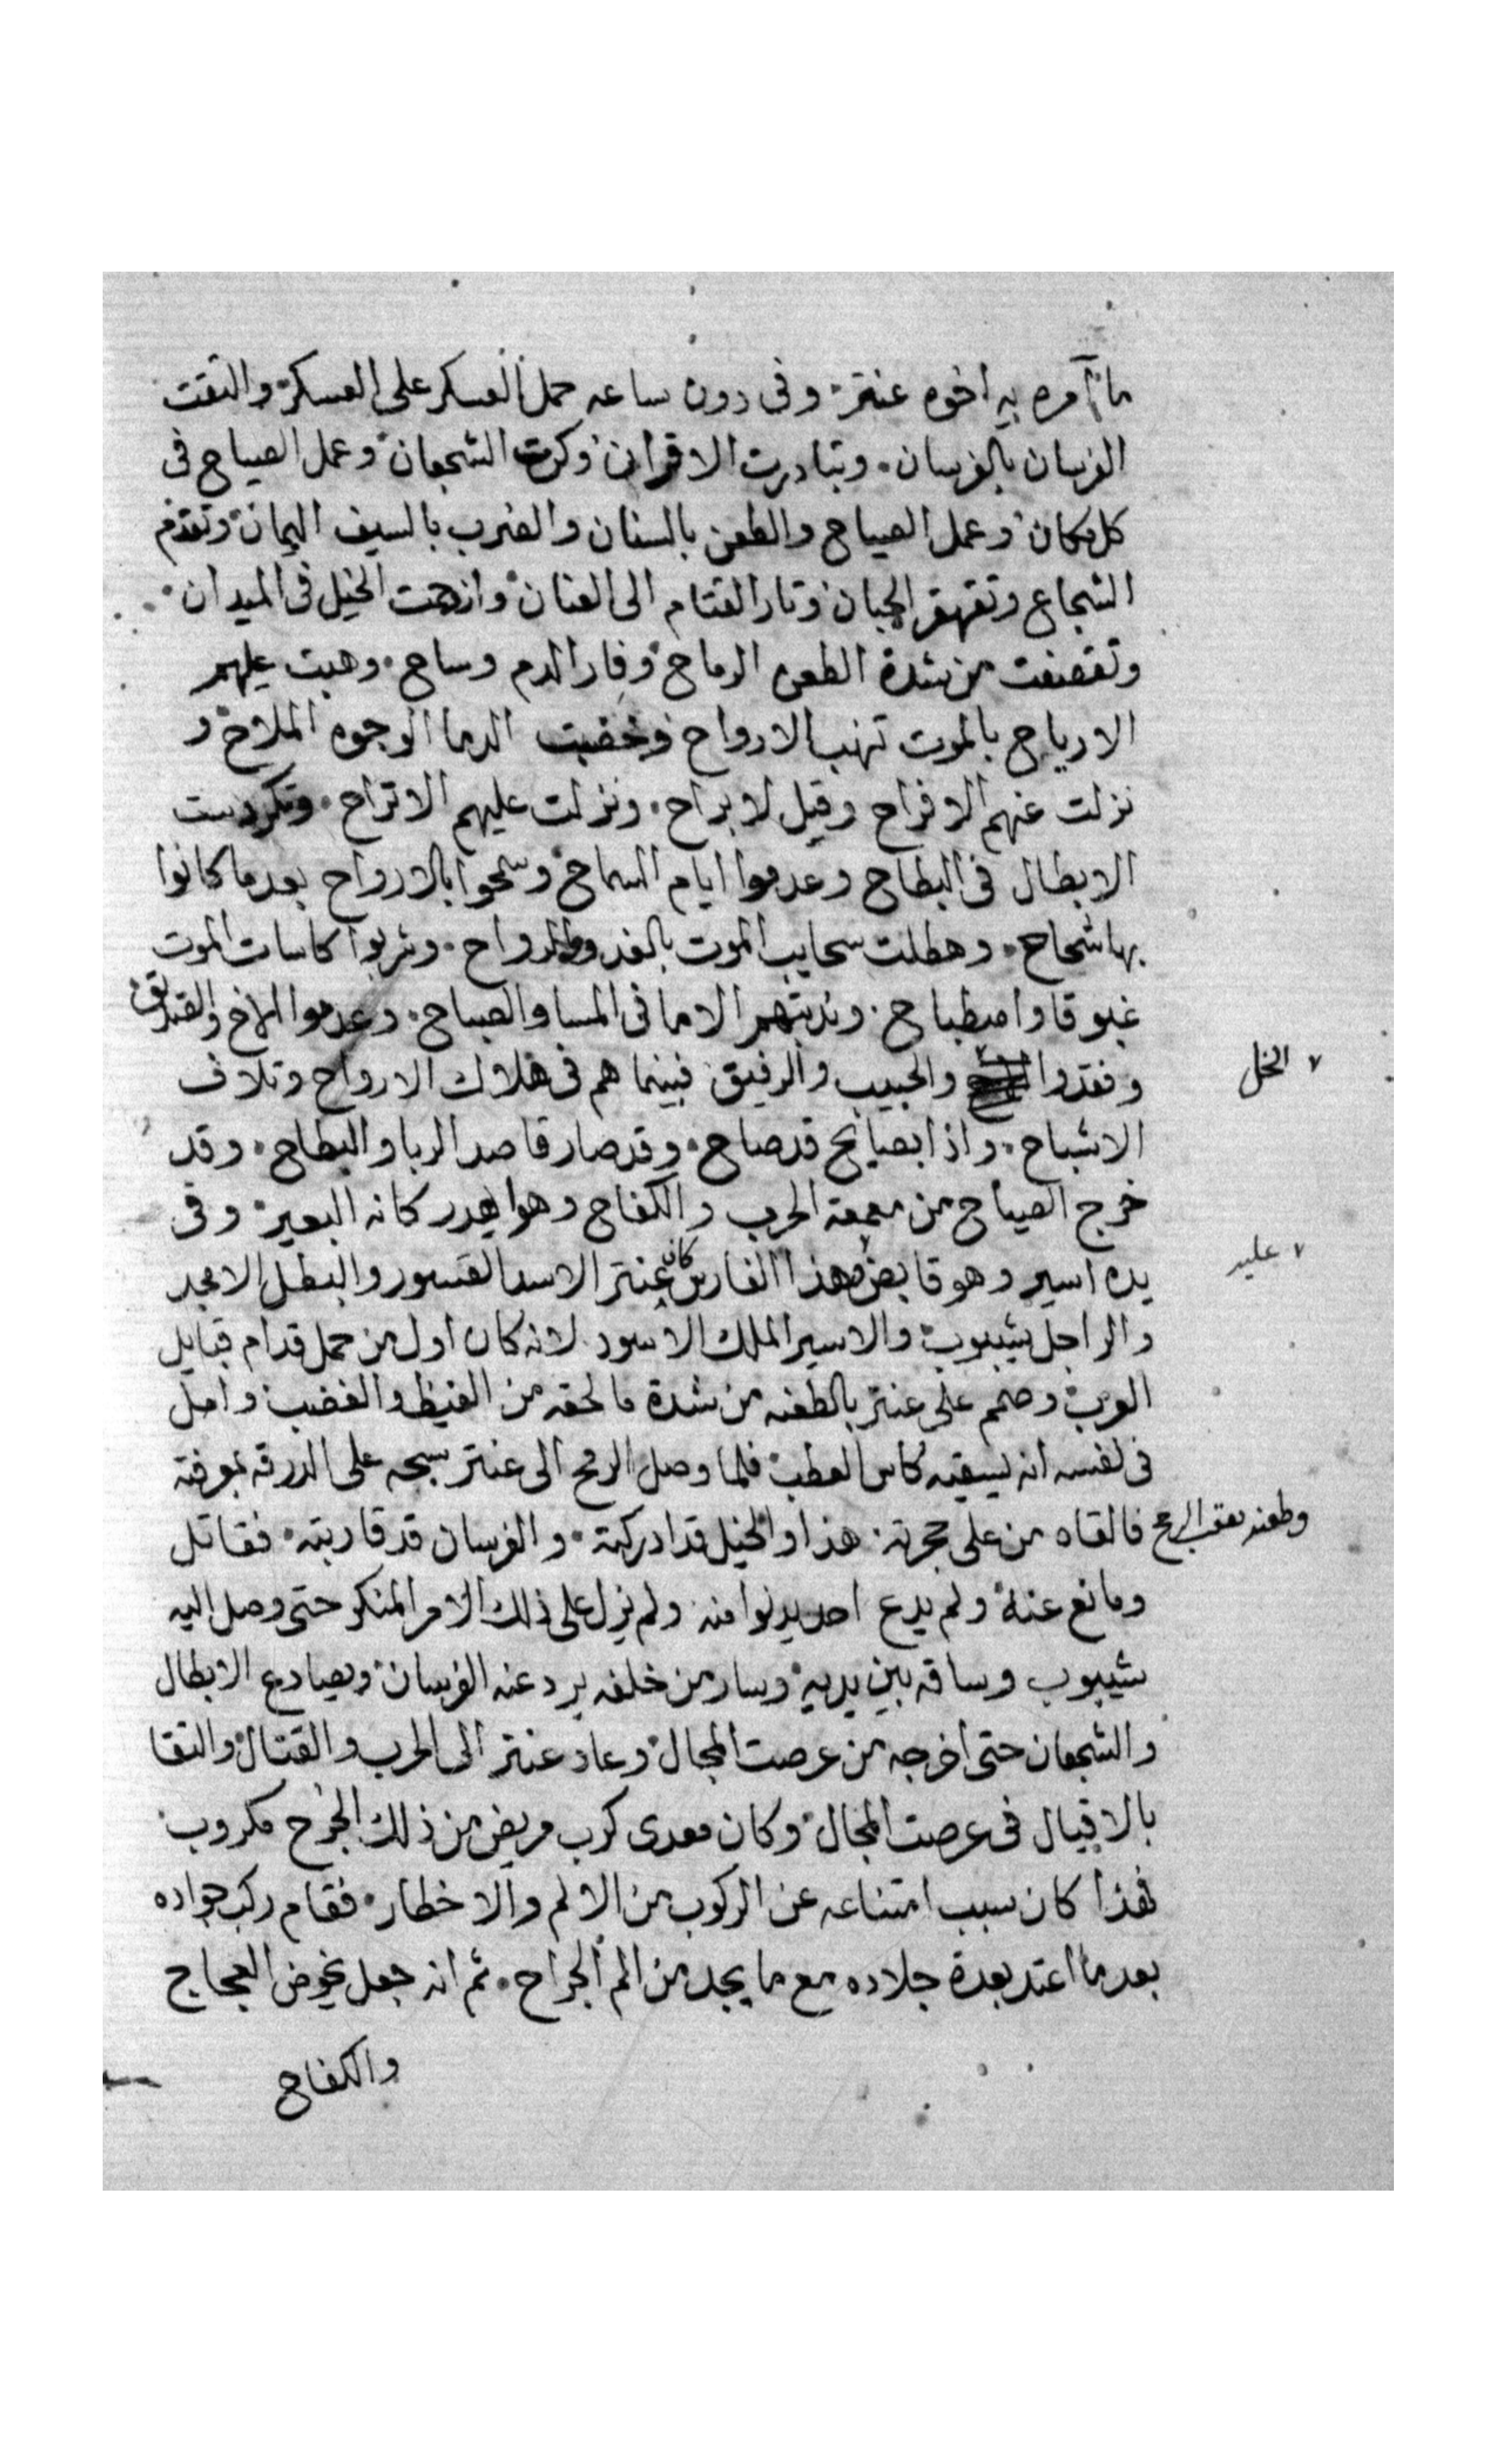 ما آمره به اخوه عنتر. وفى دون ساعه حمل العسكر على العسكر والتقت
الفرسان بالفرسان. وتبادرت الاقران وكرت الشجعان وعمل الصياح فى
كل مكان وعمل الصياح والطعن بالسنان والضرب بالسيف اليمان وتقدم
الشجاع وتقهقر الجبان وثار القتام الى العنان وازدحمت الخيل فى الميدان.
وتقصفت من شدة الطعن الرماح وفار الدم وساح. وهبت عليهم
الارياح بالموت تنهب الارواح وخضبت الدما الوجوه الملاح و
نزلت عنهم الافراح وقيل لا براح. ونزلت عليهم الاتراح. وتكردست
الابطال فى البطاح وعدموا ايام السماح وسمحوا بالارواح بعدما كانوا
بها شحاح. وهطلت سحايب الموت بالغدو والرواح. وشربوا كاسات الموت
غبوقا واصطباح. وندبتهم الاما فى المسا والصباح. وعدموا الاخ والصديق
وفقدوا والحبيب والرفيق فبينما هم فى هلاك الارواح وتلاف
٧ الخل
الاشباح. واذا بصايح قد صاح. وقد صار قاصد الربا والبطاح. وقد
خرج الصياح من معمعة الحرب والكفاح وهو يهدر كانه البعير. وفى
يده اسير وهو قابض وهذا الفارس كان عنتر الاسد القسور والبطل الامجد
٧ عليه
والراجل شيبوب والاسير الملك الاسود لانه كان اول من حمل قدام قبايل
العرب وصمم على عنتر بالطعنه من شدة ما لحقه من الغيظ والغضب وامل
فى نفسه انه يسقيه كاس العطب فلما وصل الرمح الى عنتر سبحه على الدرقه بمعرفته
وطعنه بعقب الرمح فالقاه من على حجرته. هذا والخيل قد ادركته. والفرسان قد قاربته. فقاتل
ومانع عنه ولم يدع احد يدنوا منه ولم يزل على ذلك الامر المنكر حتى وصل اليه
شيبوب وساقه بين يديه وسار من خلفه يرد عنه الفرسان ويصادع الابطال
والشجعان حتى اخرجه من عرصت المجال وعاد عنتر الى الحرب والقتال والتقا
بالاقيال فى عرصت المجال وكان معدى كرب مريض من ذلك الجرح مكروب
فهذا كان سبب امتناعه عن الركوب من الالم والاخطار. فقام ركب جواده
بعد ما اعتد بعدة جلاده مع ما يجد من الم الجراح. ثم انه جعل يخوض العجاج
والكفاح